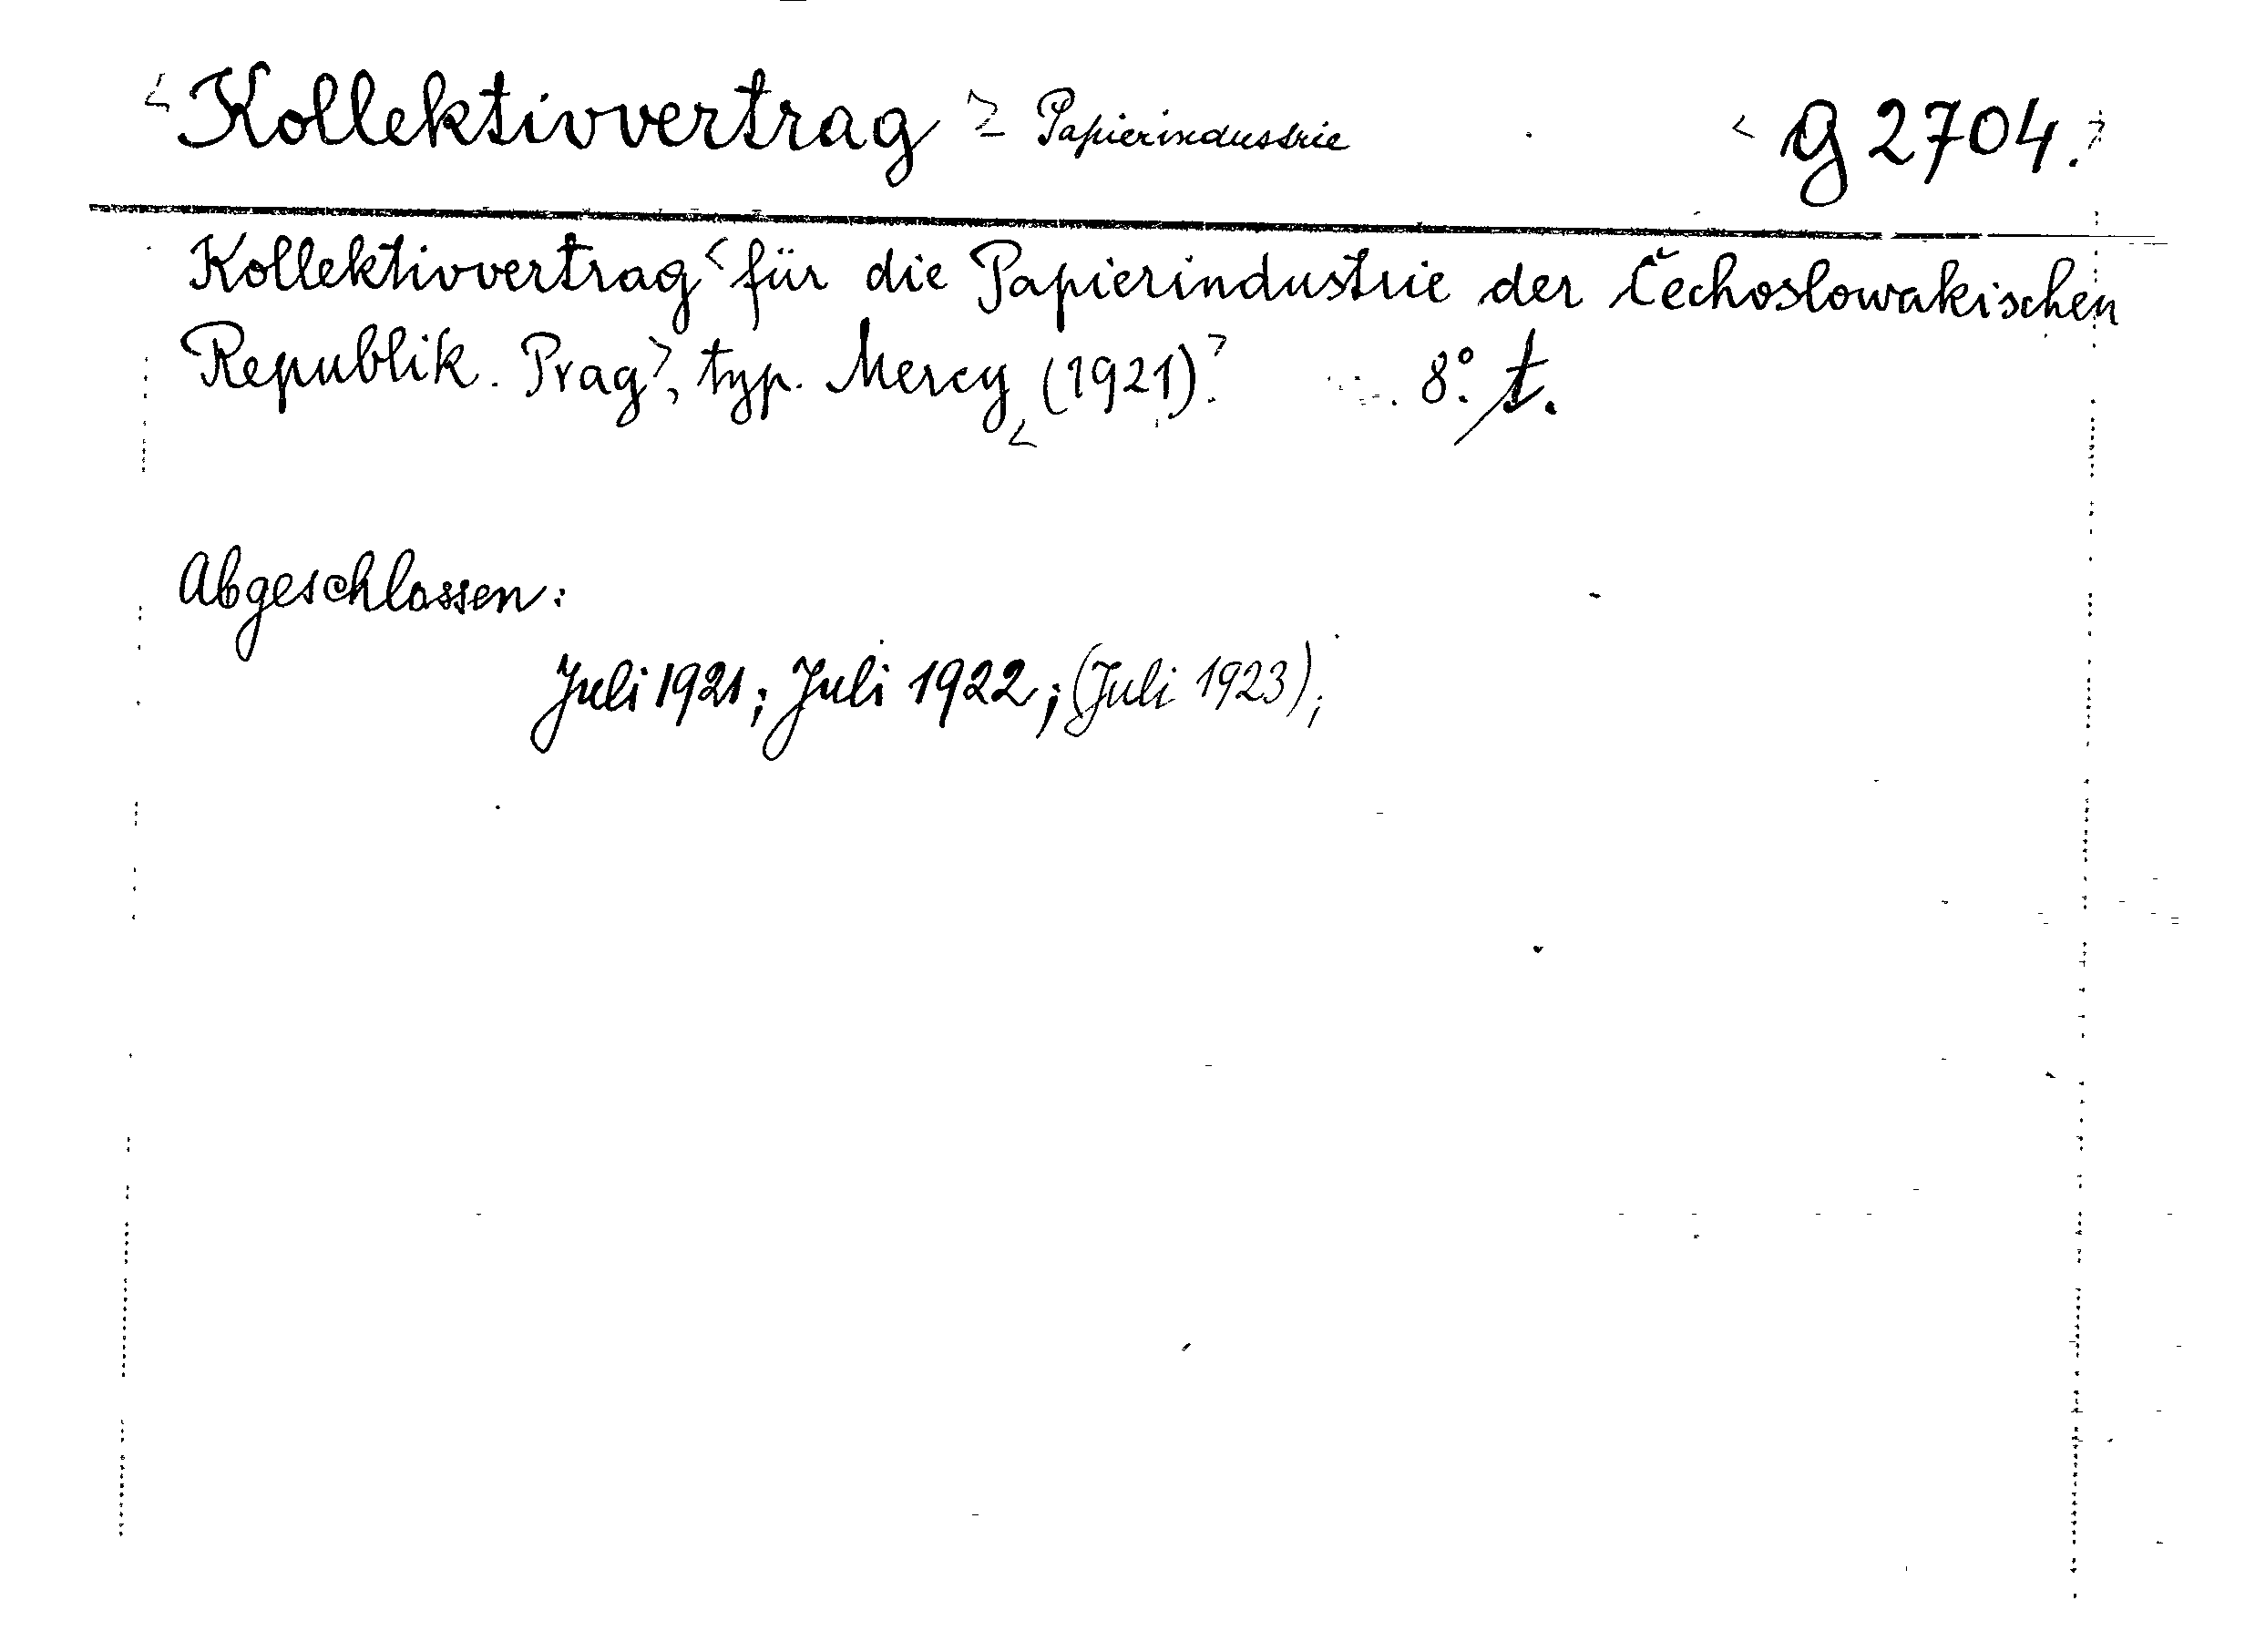 <Kollektivvertrag> Papierindustrie <G 2704.>
Kollektivvertrag <für die Papierindustrie der Čechoslowakischen
Republik. Prag>, typ. Mercy <(1921).> 8º. t.
Abgeschlossen:
Juli 1921; Juli 1922; (Juli 1923);